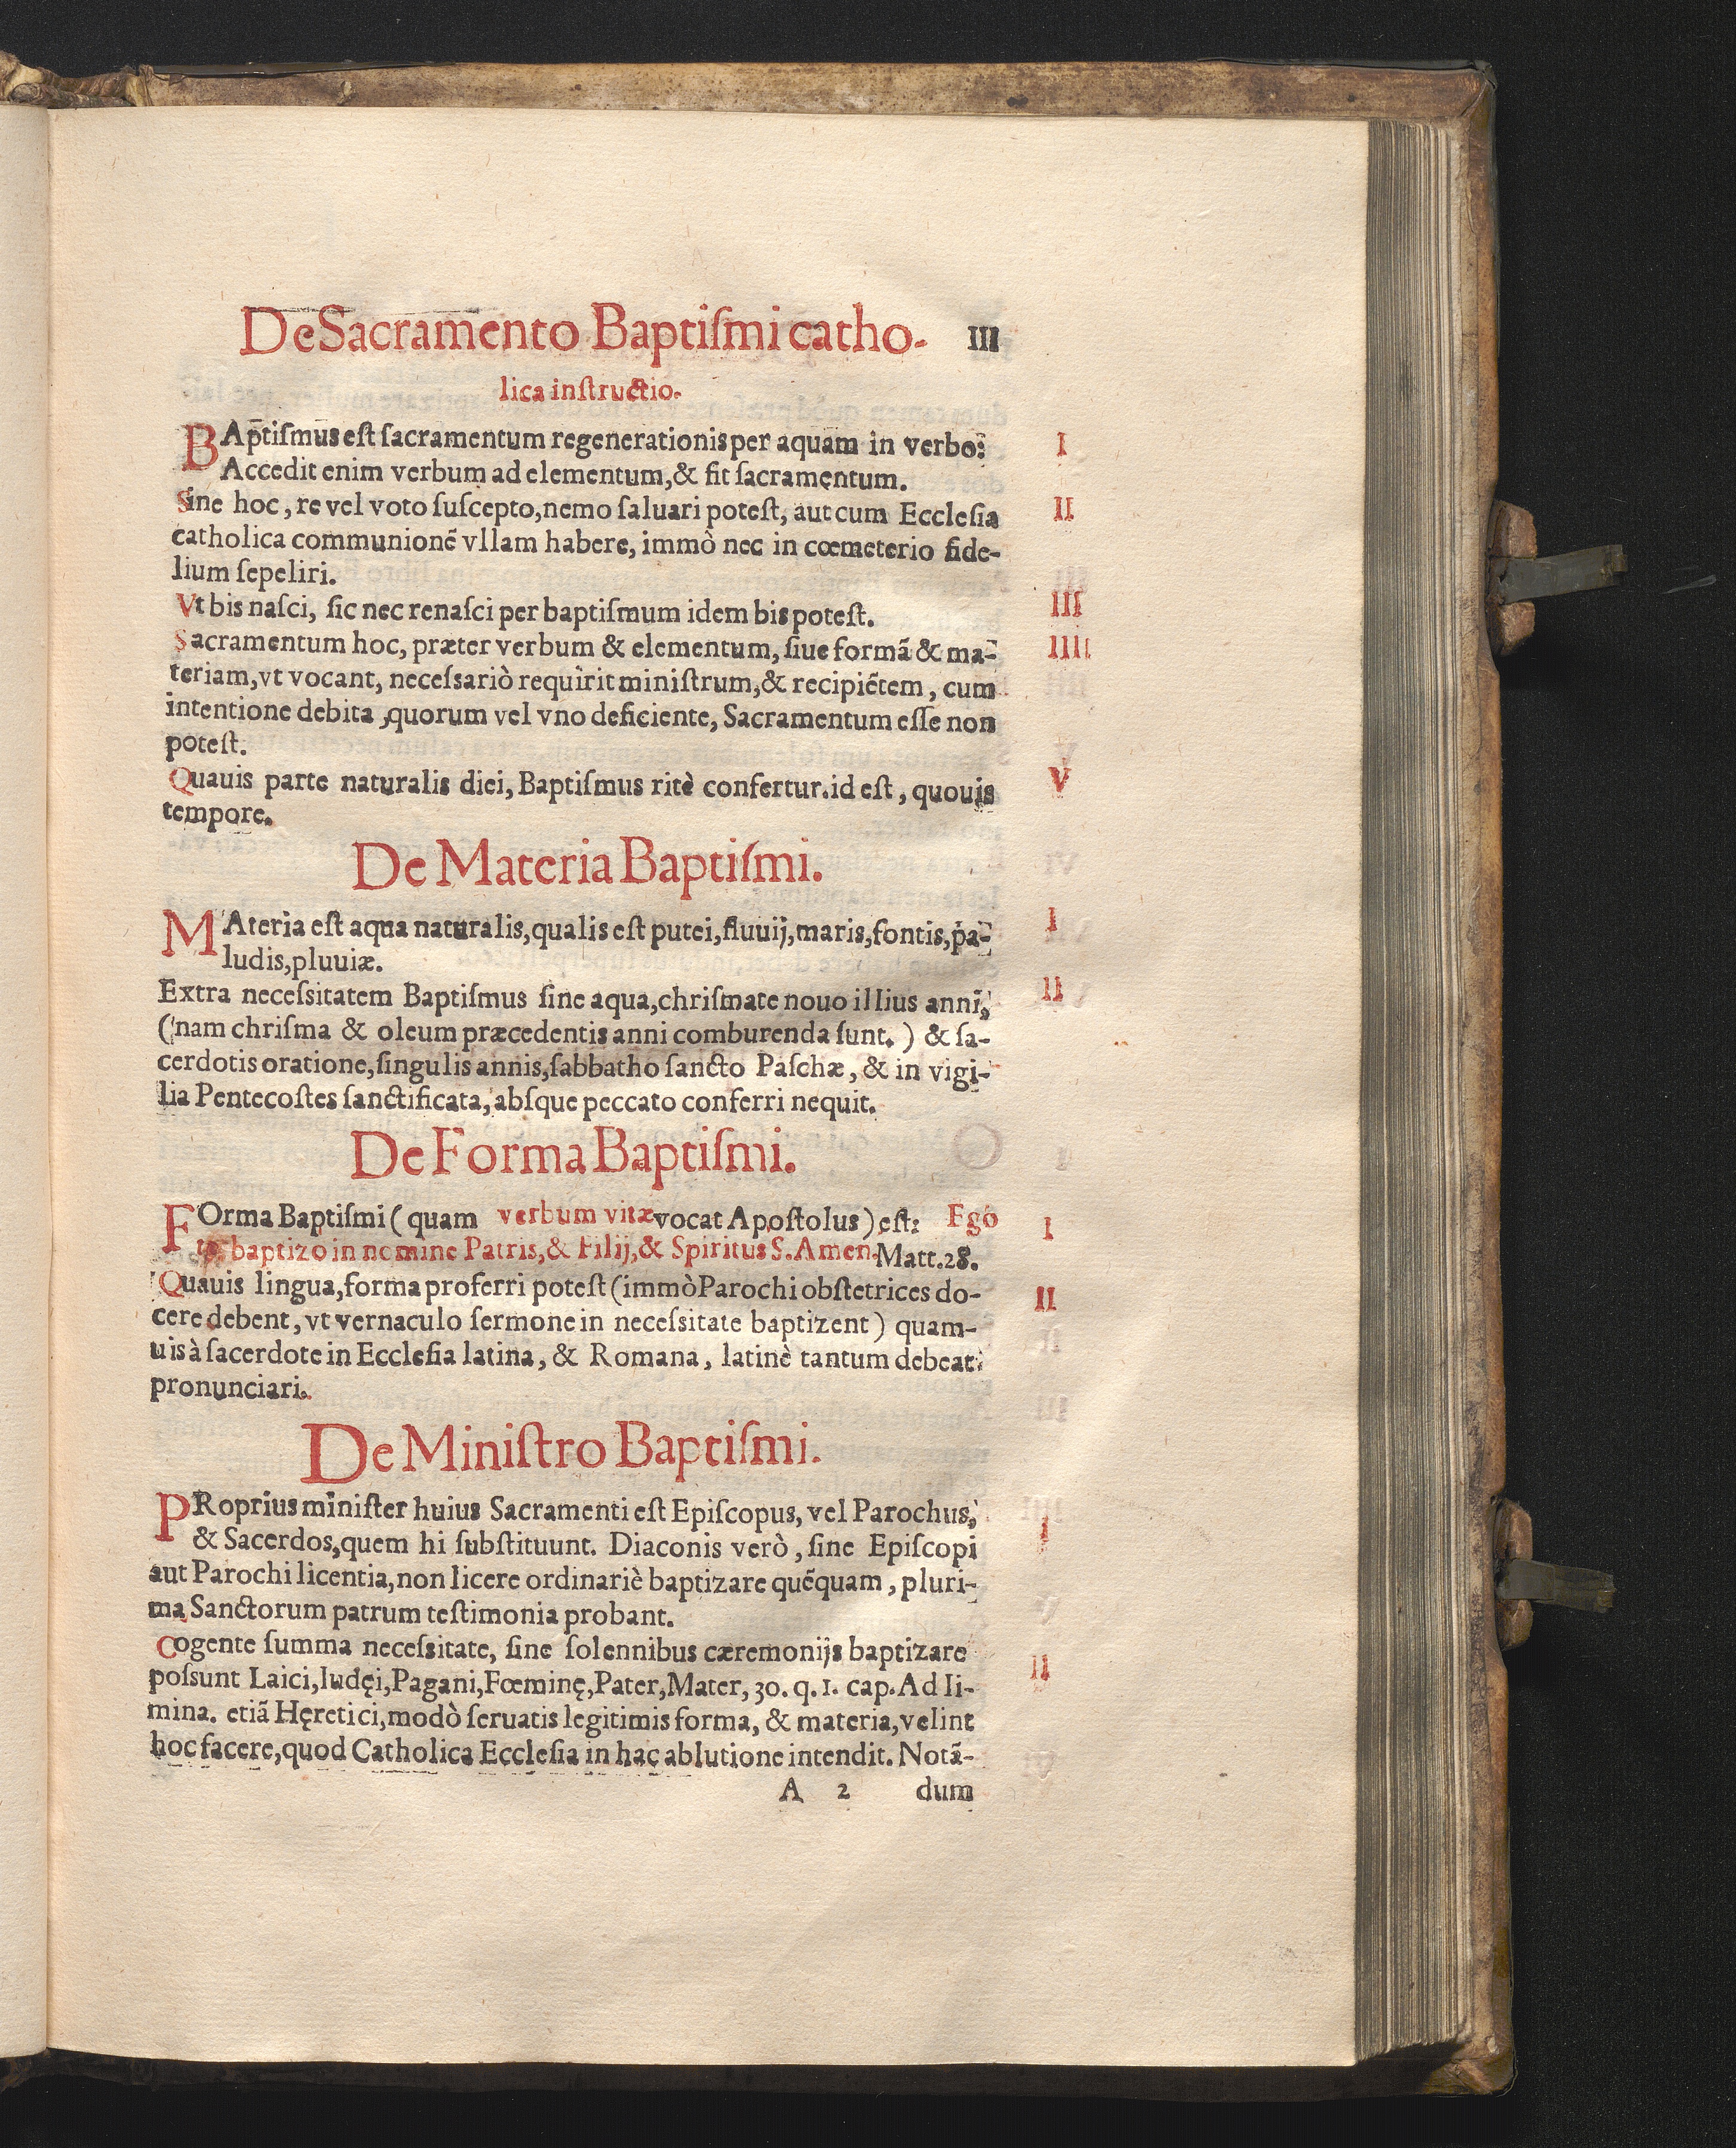 De Sacramento Baptiſmi catho- III
lica inſtructio.
BAptiſmus eſt ſacramentum regenerationis per aquam in verbo: I
Accedit enim verbum ad elementum, & fit ſacramentum.
Sine hoc, re vel voto ſuſcepto, nemo ſaluari poteſt, aut cum Eccleſia II
catholica communionē vllam habere, immò nec in cœmeterio fide-
lium ſepeliri.
Vt bis naſci, ſic nec renaſci per baptiſmum idem bis poteſt. III
Sacramentum hoc, præter verbum & elementum, ſiue formā & ma- IIII
teriam, vt vocant, neceſsariò requirit miniſtrum, & recipiētem, cum
intentione debita, quorum vel vno deficiente, Sacramentum eſſe non
poteſt.
Quauis parte naturalis diei, Baptiſmus ritè confertur. id eſt, quouis V
tempore.
De Materia Baptiſmi.
MAteria eſt aqua naturalis, qualis eſt putei, fluuij, maris, fontis, pa- I
ludis, pluuiæ.
Extra neceſsitatem Baptiſmus ſine aqua, chriſmate nouo illius anni, II
(nam chriſma & oleum præcedentis anni comburenda ſunt.) & ſa-
cerdotis oratione, ſingulis annis, ſabbatho ſancto Paſchæ, & in vigi-
lia Pentecoſtes ſanctificata, abſque peccato conferri nequit.
De Forma Baptiſmi.
FOrma Baptiſmi (quam verbum vitæ vocat Apoſtolus) eſt: Ego I
te baptizo in nomine Patris, & Filij, & Spiritus S. Amen. Matt. 28.
Quauis lingua, forma proferri poteſt (immò Parochi obſtetrices do- II
cere debent, vt vernaculo ſermone in neceſsitate baptizent) quam-
uis à ſacerdote in Eccleſia latina, & Romana, latinè tantum debeat
pronunciari.
De Miniſtro Baptiſmi.
PRoprius miniſter huius Sacramenti eſt Epiſcopus, vel Parochus, I
& Sacerdos, quem hi ſubſtituunt. Diaconis verò, ſine Epiſcopi
aut Parochi licentia, non licere ordinariè baptizare quēquam, pluri-
ma Sanctorum patrum teſtimonia probant.
Cogente ſumma neceſsitate, ſine ſolennibus cæremonijs baptizare II
poſsunt Laici, Iudęi, Pagani, Fœminę, Pater, Mater, 30. q. 1. cap. Ad li-
mina. etiā Hęretici, modò ſeruatis legitimis forma, & materia, velint
hoc facere, quod Catholica Eccleſia in hac ablutione intendit. Notā-
A 2 dum